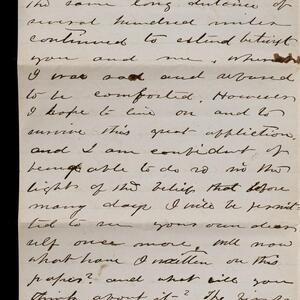 the same long distance of
several hundred miles
continued to extend betwixt
you and me, when
I was sad and refused
to be comforted. However
I hope to live on and to
survive this great affliction
and I am confident of
being able to do so in the
light of the belief that before
many days I will be permit
ted to see your own dear
self once more, will now
what have I written on this
paper? and what will you
think about it? the